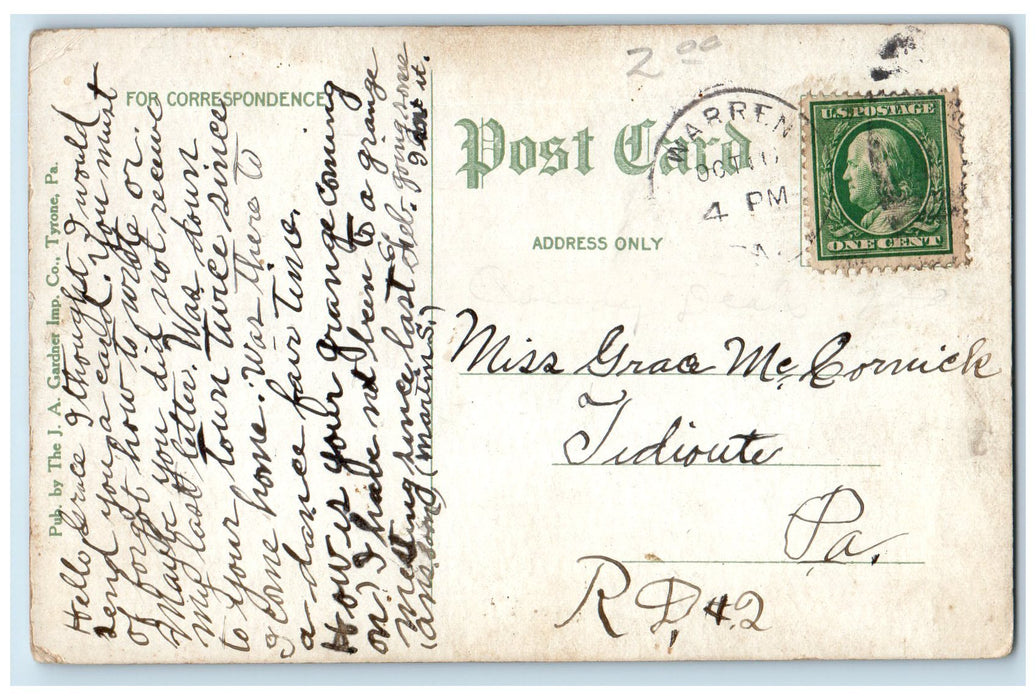 Pub. by The J. A. Gardner Imp. Co., Tyrone, Pa.
FOR CORRESPONDENCE
Hello Grace I thought I would
send you a card. You must
of forgot how to write or
Maybe you did not receive
my last letter. Was down
to your town twice since
I come home. Was there to
a dance fair time.
How is your grange coming
on. I have not been to a grange
meeting since last Feb. going some
(Martin S.)
Post Card
ADDRESS ONLY
2 00
WARREN
OCT 10
4 PM
PA.
U.S. POSTAGE
ONE CENT
Miss Grace McCormick
Tidioute
Pa.
R D #2